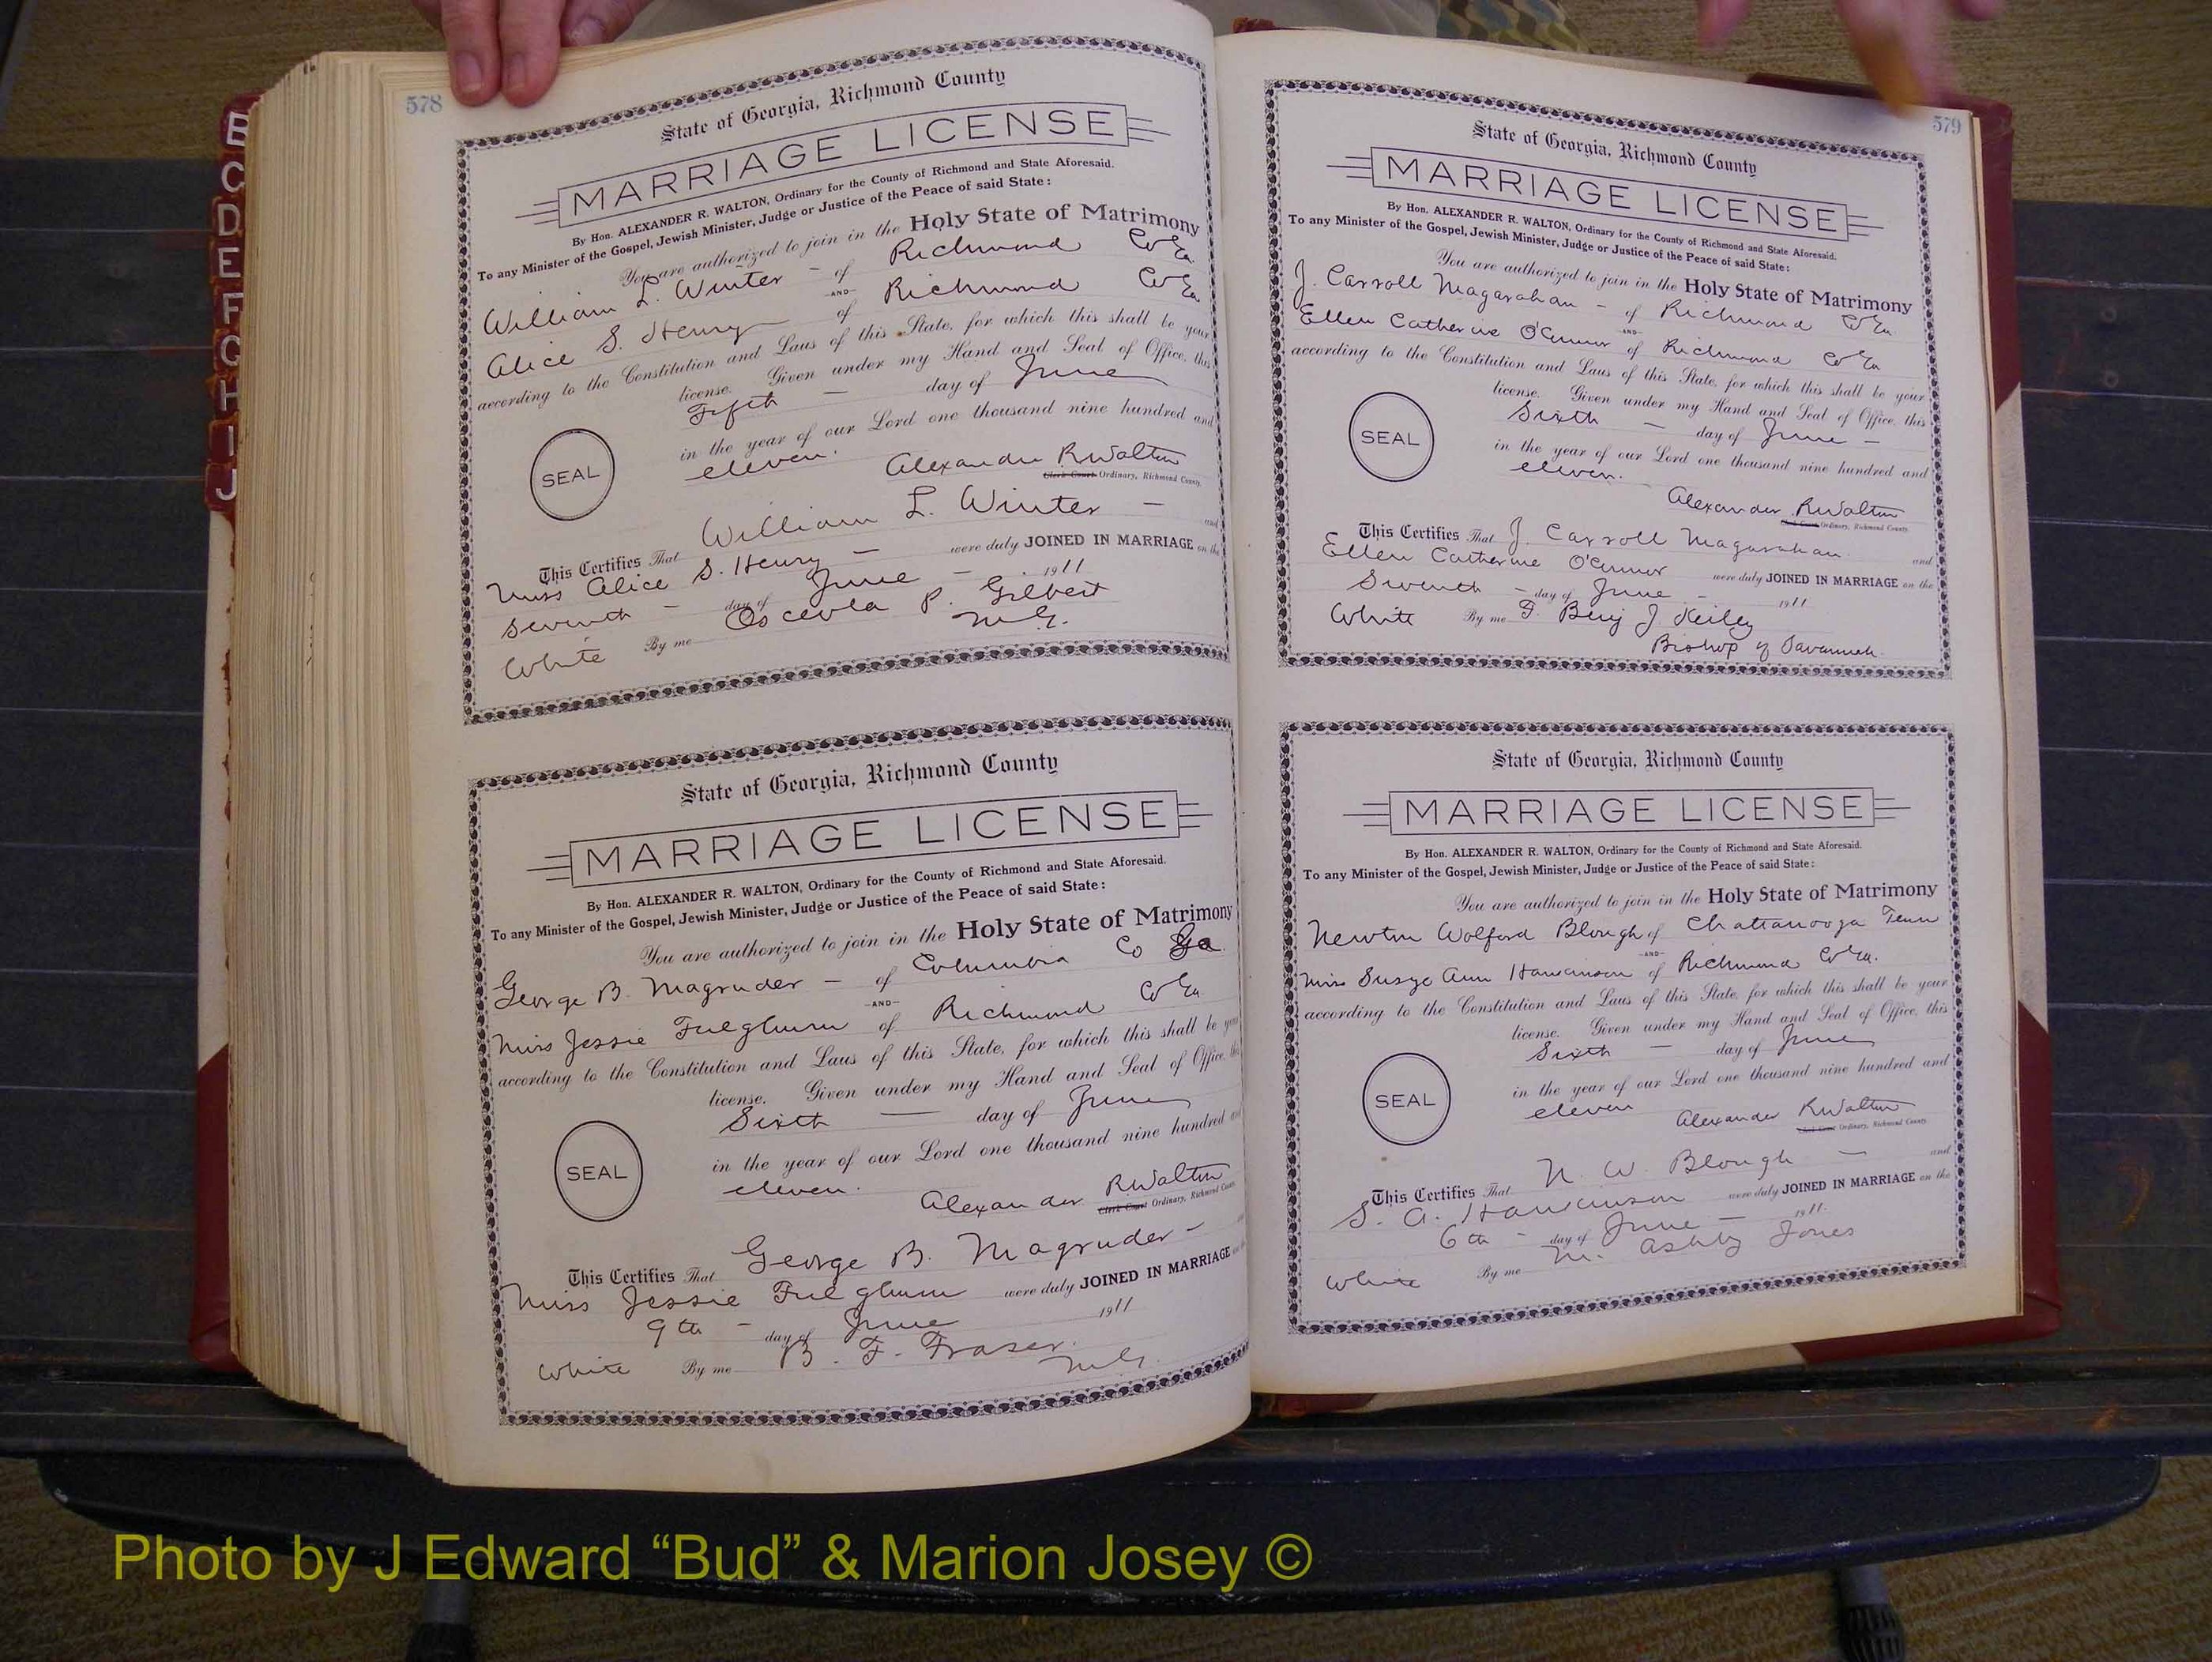 B
C
D
E
F
G
H
I
J
578
State of Georgia, Richmond County
MARRIAGE LICENSE
By Hon. ALEXANDER R. WALTON, Ordinary for the County of Richmond and State Aforesaid.
To any Minister of the Gospel, Jewish Minister, Judge or Justice of the Peace of said State:
You are authorized to join in the Holy State of Matrimony
William L. Winter - of Richmond Co Ga.
-AND-
Alice S. Henry of Richmond Co Ga.
according to the Constitution and Laws of this State, for which this shall be your
license. Given under my Hand and Seal of Office, this
Fifth - day of June
in the year of our Lord one thousand nine hundred and
eleven.
SEAL
Alexander R Walton
Clerk Court Ordinary, Richmond County.
This Certifies That William L. Winter - and
Miss Alice S. Henry - were duly JOINED IN MARRIAGE on the
Seventh - day of June - 1911
White By me Osceola P. Gilbert
M.G.
State of Georgia, Richmond County
MARRIAGE LICENSE
By Hon. ALEXANDER R. WALTON, Ordinary for the County of Richmond and State Aforesaid.
To any Minister of the Gospel, Jewish Minister, Judge or Justice of the Peace of said State:
You are authorized to join in the Holy State of Matrimony
George B. Magruder - of Columbia Co Ga.
-AND-
Miss Jessie Fulghum of Richmond Co Ga
according to the Constitution and Laws of this State, for which this shall be your
license. Given under my Hand and Seal of Office, this
Sixth - day of June
in the year of our Lord one thousand nine hundred and
eleven.
SEAL
Alexander R Walton
Clerk Court Ordinary, Richmond County
This Certifies That George B. Magruder -
Miss Jessie Fulghum were duly JOINED IN MARRIAGE on the
9th - day of June 1911
White By me B. F. Fraser.
M.G.
579
State of Georgia, Richmond County
MARRIAGE LICENSE
By Hon. ALEXANDER R. WALTON, Ordinary for the County of Richmond and State Aforesaid.
To any Minister of the Gospel, Jewish Minister, Judge or Justice of the Peace of said State:
You are authorized to join in the Holy State of Matrimony
J. Carroll Magarahan - of Richmond Co Ga
-AND-
Ellen Catherine O'Connor of Richmond Co Ga
according to the Constitution and Laws of this State, for which this shall be your
license. Given under my Hand and Seal of Office, this
Sixth - day of June -
in the year of our Lord one thousand nine hundred and
eleven.
SEAL
Alexander R Walton
Clerk Court Ordinary, Richmond County
This Certifies That J. Carroll Magarahan and
Ellen Catherine O'Connor were duly JOINED IN MARRIAGE on the
Seventh - day of June - 1911
White By me Benj J. Keiley
Bishop of Savannah.
State of Georgia, Richmond County
MARRIAGE LICENSE
By Hon. ALEXANDER R. WALTON, Ordinary for the County of Richmond and State Aforesaid.
To any Minister of the Gospel, Jewish Minister, Judge or Justice of the Peace of said State:
You are authorized to join in the Holy State of Matrimony
Newton Wolford Blough of Chattanooga Tenn
-AND-
Miss Susye Ann Hawkinson of Richmond Co Ga.
according to the Constitution and Laws of this State, for which this shall be your
license. Given under my Hand and Seal of Office, this
Sixth - day of June
in the year of our Lord one thousand nine hundred and
eleven
SEAL
Alexander R Walton
Clerk Court Ordinary, Richmond County
This Certifies That N. W. Blough - and
S. A. Hawkinson were duly JOINED IN MARRIAGE on the
6th - day of June - 1911.
White By me M. Ashby Jones
Photo by J Edward “Bud” & Marion Josey ©